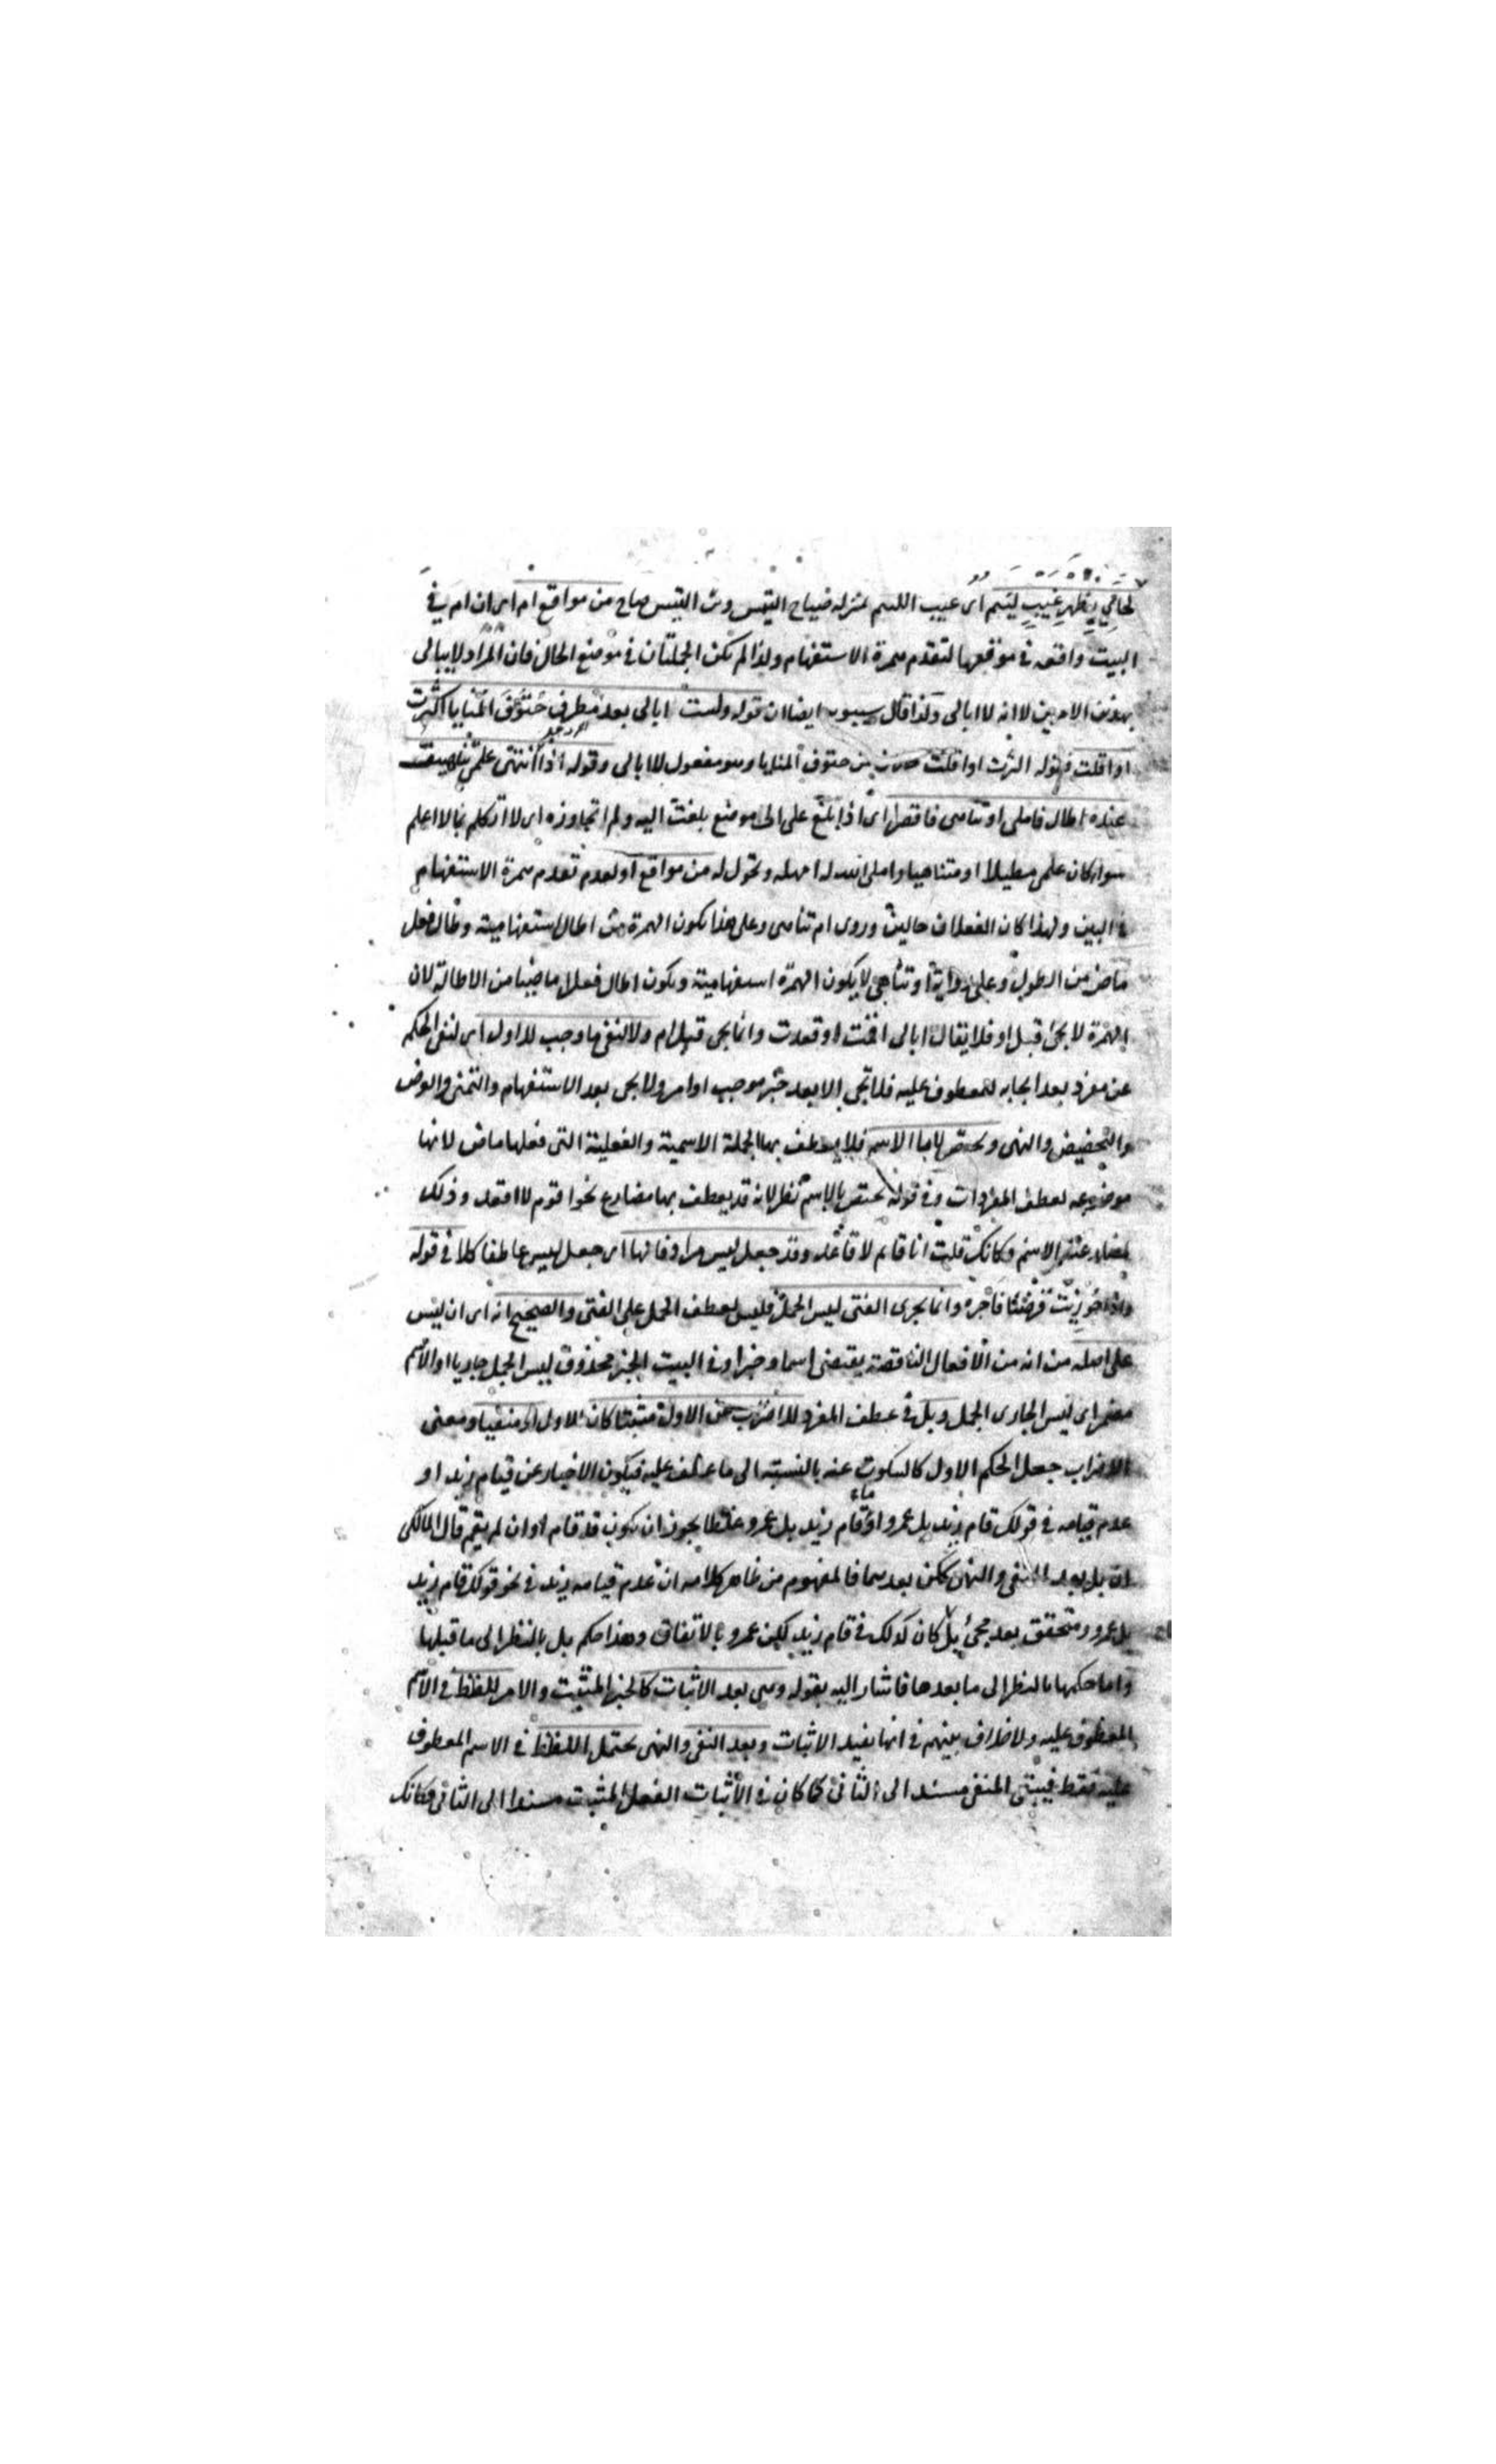 لحاني بظهر غيب لئيم اى عيب اللئيم بمنزلة صياح التيس ونب التيس صاح من مواقع ام اى ان ام في
البيت واقعه في موقعها لتقدم همزة الاستفهام ولذا لم تكن الجملتان في موضع الحال فان المراد لا يبالى
بهذين الامرين لا انه لا ابالى ولذا قال سيبويه ايضا ان قوله ولست ابالى بعد مطرف حتوف المنايا اكثرت
او اقلت فقوله اكثرت او اقلت من حتوف المنايا وهو مفعول لا ابالى وقوله اذا ما انتهى علمى تناهيت
عنده اطال فاملى او تناهى فاقصرا اى اذا بلغ علمى الى موضع بلغت اليه ولم اتجاوزه اى لا اتكلم بما لا اعلم
سواء كان علمى مطيلا او متناهيا واملى الله له امهله وطول له من مواقع او لعدم تقدم همزة الاستفهام
في البين ولهذا كان الفعلان حالين وروى ام تناهى وعلى هذا يكون الهمزة في اطال استفهامية وطال فعل
ماض من الطول وعلى رواية او تناهى لا يكون الهمزة استفهامية ويكون اطال فعلا ماضيا من الاطالة لان
الهمزة لا يجئ قبل او فلا يقال ابالى اقمت او قعدت وانما يجى قبل ام ولا لنفى ما وجب للاول اى لنفى الحكم
عن مفرد بعد ايجابه للمعطوف عليه فلا تجى الا بعد خبر موجب او امر ولا يجى بعد الاستفهام والتمنى والعرض
والتحضيض والنهى ويختص لا بالاسم فلا يعطف بها الجملة الاسمية والفعلية التى فعلها ماض لانها
موضوعه لعطف المفردات وفي قوله يختص بالاسم نظر لانه قد يعطف بها مضارع نحو اقوم لا اقعد وذلك
لمضارعته الاسم وكانك قلت انا قائم لا قاعد وقد جعل ليس مرادفا لها اى جعل ليس عاطفا كلا في قوله
واذا جوزيت قرضا فاجزه وانما يجزى الفتى ليس الجمل فليس لعطف الجمل على الفتى والصحيح انه اى ان ليس
على اصله من انه من الافعال الناقصة يقتضى اسما وخبرا وفي البيت الخبر محذوف ليس الجمل جازيا او الاسم
مضمر اى ليس الجازى الجمل وبل في عطف المفرد للاضراب عن الاول مثبتا كان الاول او منفيا ومعنى
الاضراب جعل الحكم الاول كالسكوت عنه بالنسبة الى ما عطف عليه فيكون الاخبار عن قيام زيد او
عدم قيامه في قولك قام زيد بل عمرو او ما قام زيد بل عمرو غلطا يجوز ان يكون قد قام او ان لم يقم قال المالكى
ان بل بعد النفى والنهى كلكن بعدهما فالمفهوم من ظاهر كلامه ان عدم قيام زيد في نحو قولك ما قام زيد
بل عمرو متحقق بعد مجئ بل كان كذلك في ما قام زيد لكن عمرو بالاتفاق وهذا حكم بل بالنظر الى ما قبلها
واما حكمها بالنظر الى ما بعدها فاشار اليه بقوله وهى بعد الاثبات كالخبر المثبت والامر للغلط في الاسم
المعطوف عليه ولا خلاف بينهم في انها يفيد الاثبات وبعد النفى والنهى يحتمل الغلط في الاسم المعطوف
عليه فقط فيبقى المنفى مسندا الى الثانى كما كان في الاثبات الفعل المثبت مسندا الى الثانى فكانك